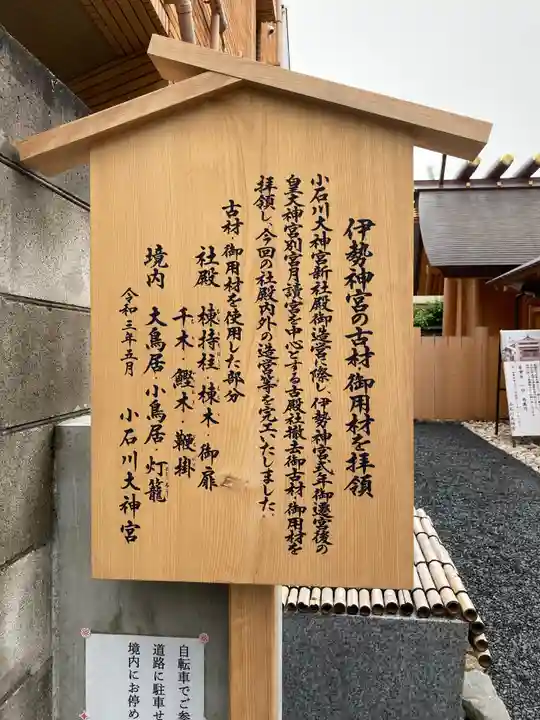 伊勢神宮の古材・御用材を拝領
小石川大神宮新社殿御造営に際し、伊勢神宮式年御遷宮後の
皇大神宮別宮月讀宮を中心とする古殿社撤去御古材・御用材を
拝領し、今回の社殿内外の造営等を完工いたしました。
古材・御用材を使用した部分
社殿 棟持柱・棟木・御扉
千木・鰹木・鞭掛
境内 大鳥居・小鳥居・灯籠
令和三年五月 小石川大神宮
自転車でご参
道路に駐車せ
境内にお停め